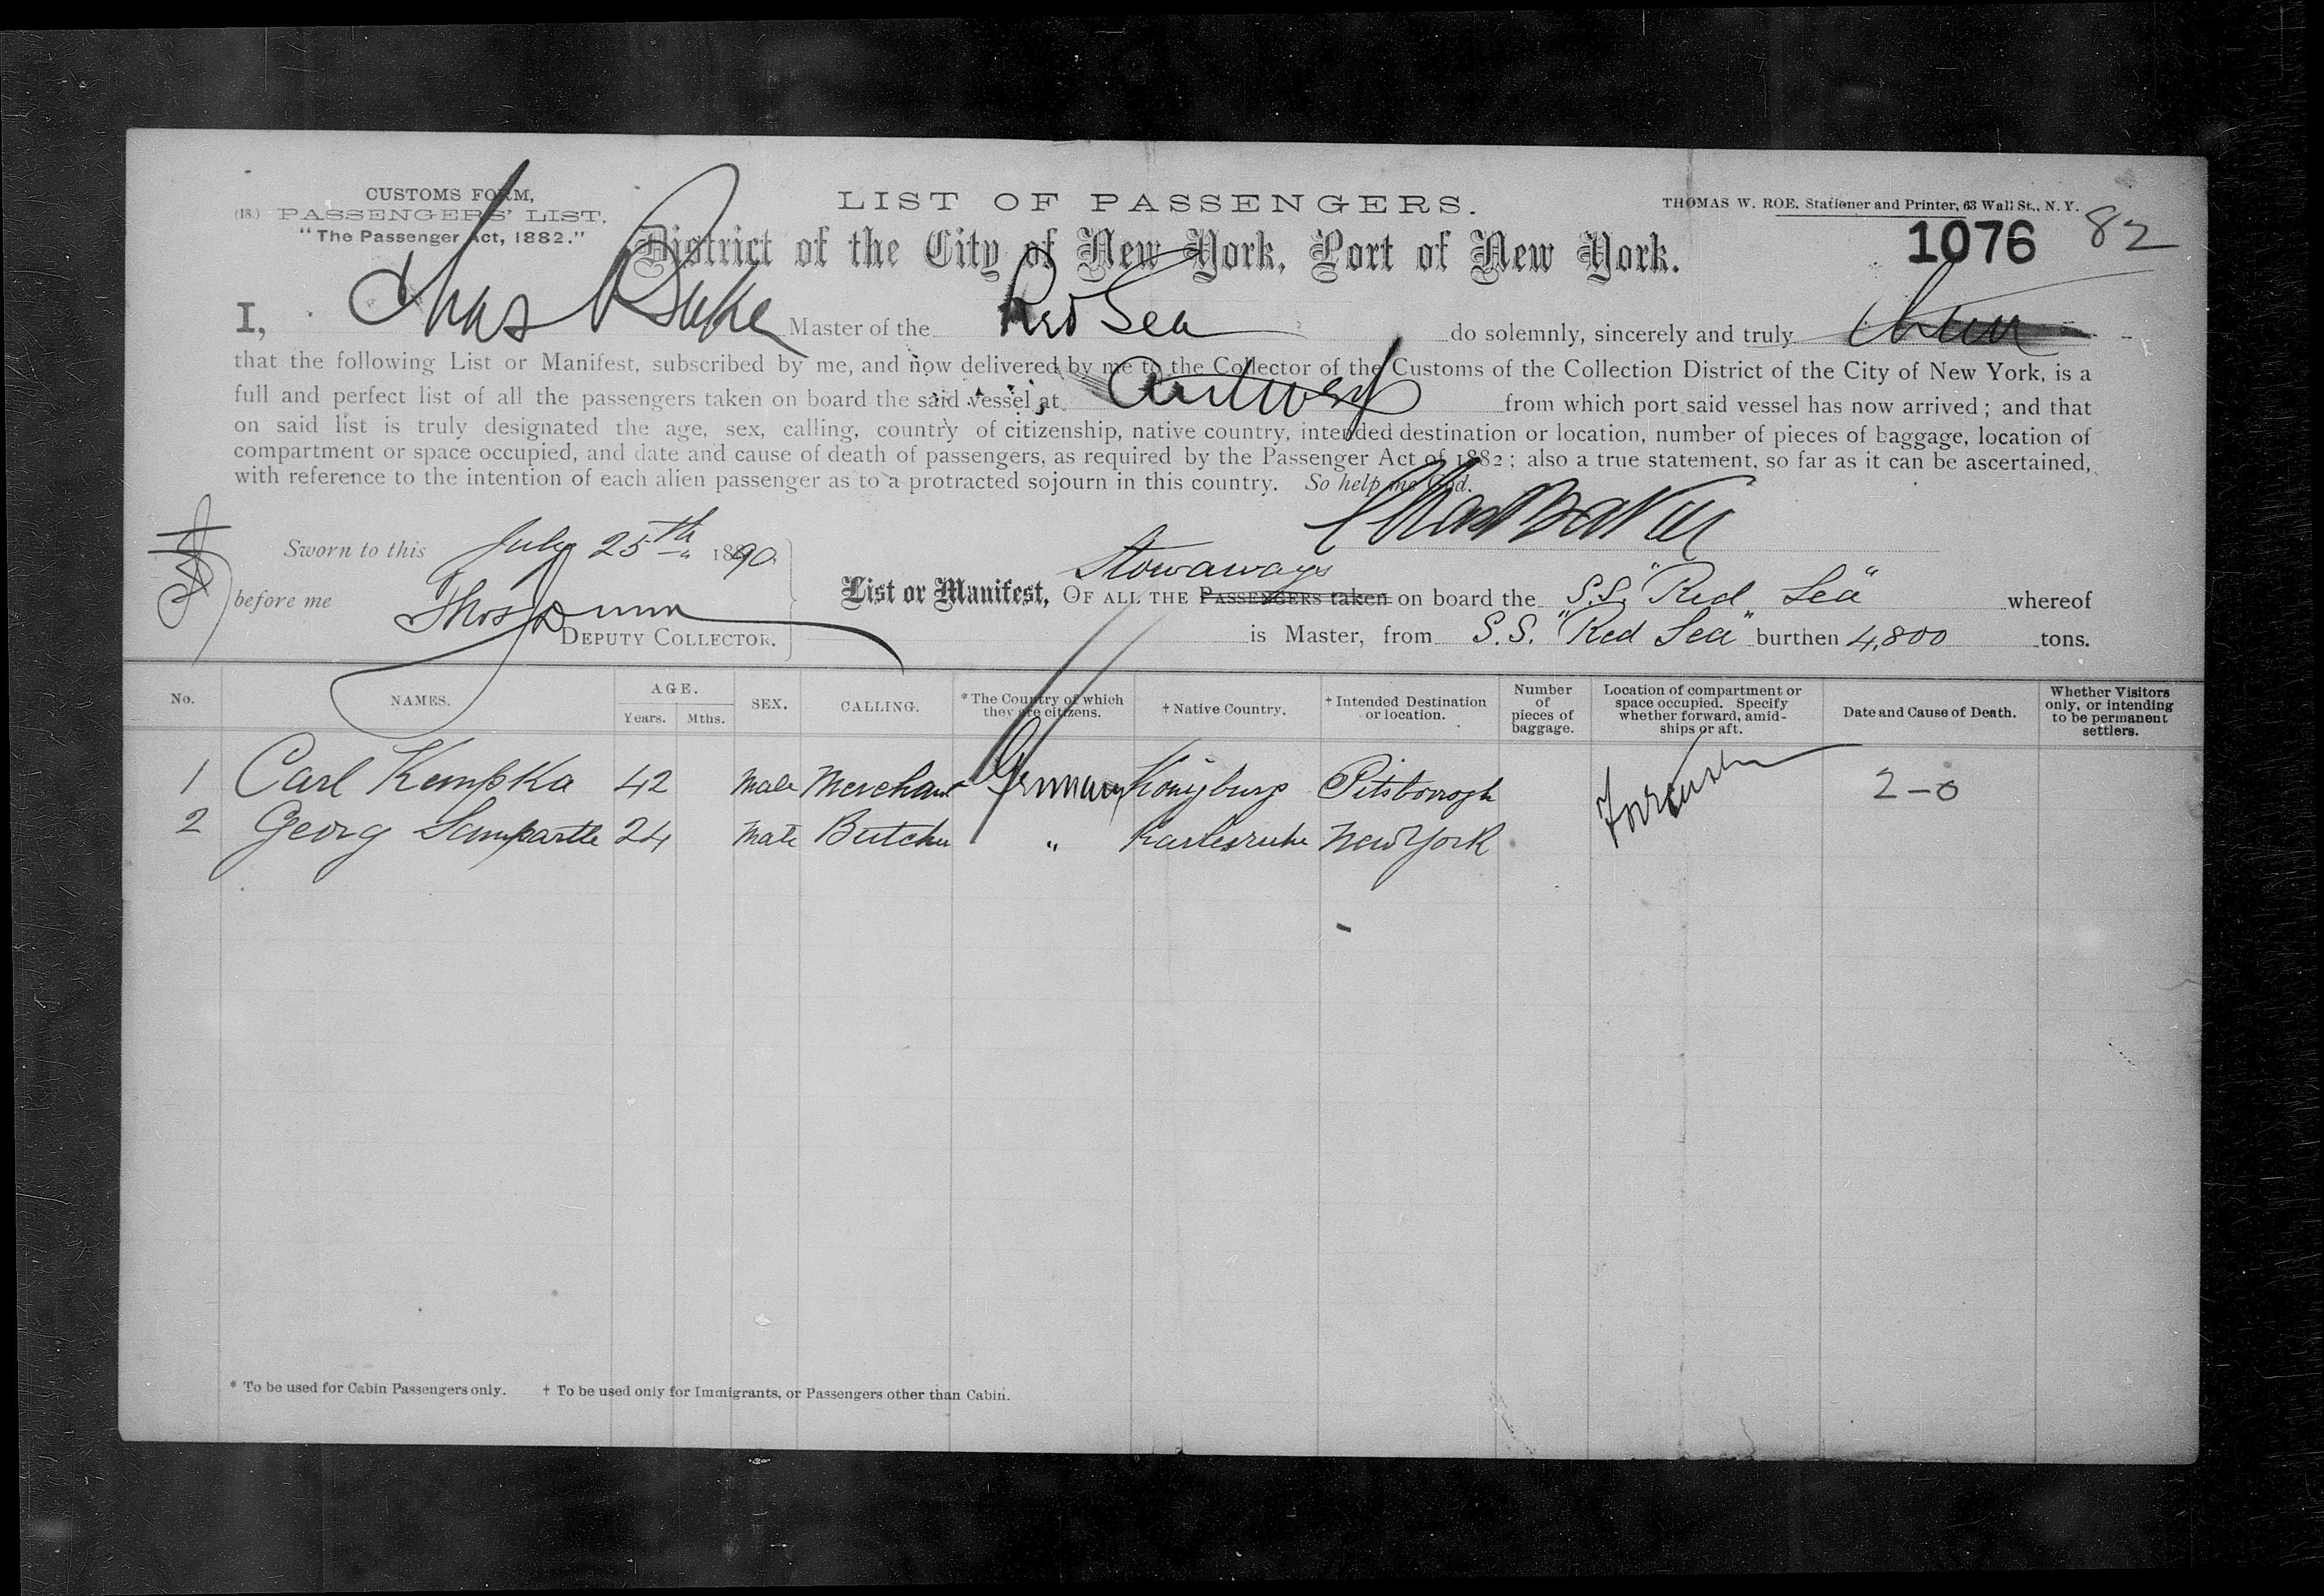 CUSTOMS FORM,
(18.) PASSENGERS' LIST.
"The Passenger Act, 1882."
LIST OF PASSENGERS.
THOMAS W. ROE, Stationer and Printer, 63 Wall St., N. Y.
District of the City of New York, Port of New York.
1076 82
I, Chas Baker Master of the Red Sea do solemnly, sincerely and truly swear
that the following List or Manifest, subscribed by me, and now delivered by me to the Collector of the Customs of the Collection District of the City of New York, is a
full and perfect list of all the passengers taken on board the said vessel at Antwerp from which port said vessel has now arrived; and that
on said list is truly designated the age, sex, calling, country of citizenship, native country, intended destination or location, number of pieces of baggage, location of
compartment or space occupied, and date and cause of death of passengers, as required by the Passenger Act of 1882; also a true statement, so far as it can be ascertained,
with reference to the intention of each alien passenger as to a protracted sojourn in this country. So help me God.
Chas Baker
Sworn to this July 25th 1890
before me Thos Dunn
DEPUTY COLLECTOR.
Stowaways
List or Manifest, OF ALL THE PASSENGERS taken on board the S.S. "Red Sea" whereof
is Master, from S.S. "Red Sea" burthen 4,800 tons.
No. NAMES. AGE. Years. Mths. SEX. CALLING. * The Country of which they are citizens. † Native Country. † Intended Destination or location. Number of pieces of baggage. Location of compartment or space occupied. Specify whether forward, amidships or aft. Date and Cause of Death. Whether Visitors only, or intending to be permanent settlers.
1 Carl Kempka 42 Male Merchant Germany Königburg Pitsborogh 2-0
2 Georg 24 Male Butcher " Karlesruhe New York
* To be used for Cabin Passengers only. † To be used only for Immigrants, or Passengers other than Cabin.